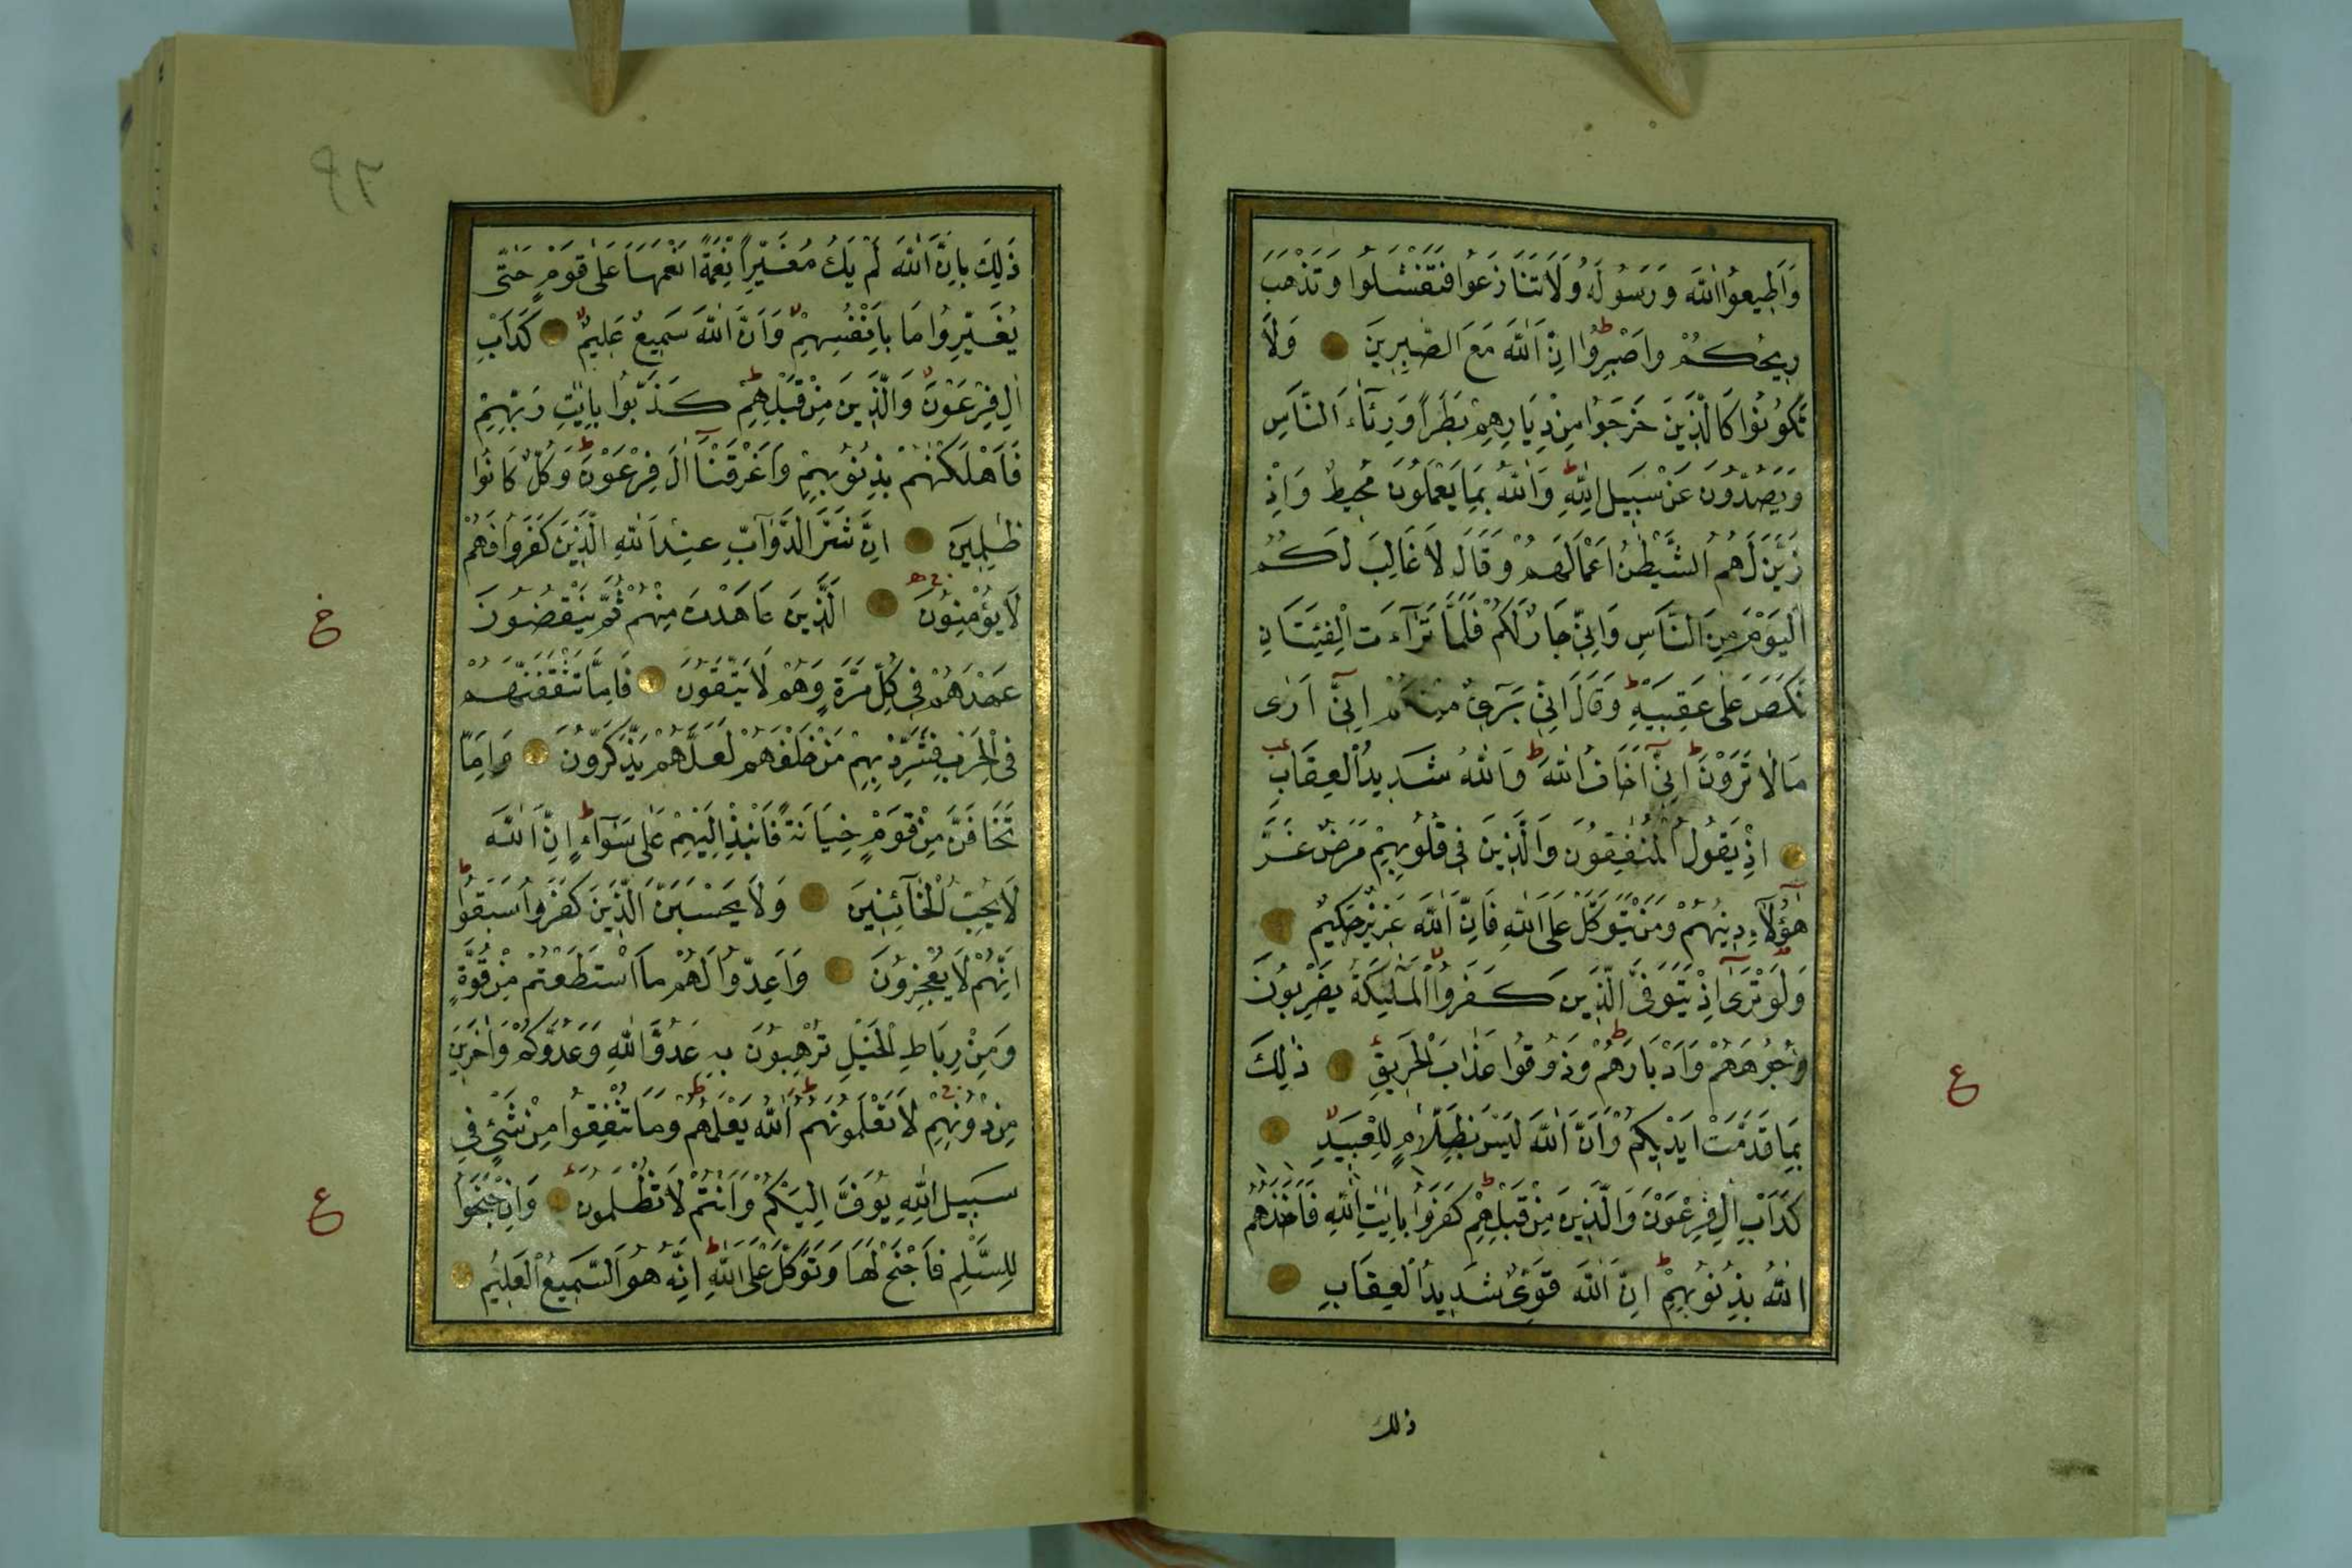 وَاَطِيعُوا اللّٰهَ وَرَسُولَهُ وَلَا تَنَازَعُوا فَتَفْشَلُوا وَتَذْهَبَ
رِيحُكُمْ وَاصْبِرُوا ط اِنَّ اللّٰهَ مَعَ الصّٰبِرِينَ وَلَا
تَكُونُوا كَالَّذِينَ خَرَجُوا مِنْ دِيَارِهِمْ بَطَرًا وَرِئَآءَ النَّاسِ
وَيَصُدُّونَ عَنْ سَبِيلِ اللّٰهِ ط وَاللّٰهُ بِمَا يَعْمَلُونَ مُحِيطٌ وَاِذْ
زَيَّنَ لَهُمُ الشَّيْطٰنُ اَعْمَالَهُمْ وَقَالَ لَا غَالِبَ لَكُمُ
الْيَوْمَ مِنَ النَّاسِ وَاِنِّي جَارٌ لَكُمْ فَلَمَّا تَرَآءَتِ الْفِئَتَانِ
نَكَصَ عَلٰى عَقِبَيْهِ ط وَقَالَ اِنِّي بَرِيءٌ مِنْكُمْ اِنِّٓي اَرٰى
مَا لَا تَرَوْنَ ط اِنِّٓي اَخَافُ اللّٰهَ ط وَاللّٰهُ شَدِيدُ الْعِقَابِ
اِذْ يَقُولُ الْمُنٰفِقُونَ وَالَّذِينَ فِي قُلُوبِهِمْ مَرَضٌ غَرَّ
هٰٓؤُلَآءِ دِينُهُمْ وَمَنْ يَتَوَكَّلْ عَلَى اللّٰهِ فَاِنَّ اللّٰهَ عَزِيزٌ حَكِيمٌ
وَلَوْ تَرٰٓى اِذْ يَتَوَفَّى الَّذِينَ كَفَرُوا لا الْمَلٰٓئِكَةُ يَضْرِبُونَ
وُجُوهَهُمْ وَاَدْبَارَهُمْ ط وَذُوقُوا عَذَابَ الْحَرِيقِ ذٰلِكَ
ع
بِمَا قَدَّمَتْ اَيْدِيكُمْ وَاَنَّ اللّٰهَ لَيْسَ بِظَلَّامٍ لِلْعَبِيدِ لا
كَدَاْبِ اٰلِ فِرْعَوْنَ وَالَّذِينَ مِنْ قَبْلِهِمْ ط كَفَرُوا بِاٰيٰتِ اللّٰهِ فَاَخَذَهُمُ
اللّٰهُ بِذُنُوبِهِمْ ط اِنَّ اللّٰهَ قَوِيٌّ شَدِيدُ الْعِقَابِ
ذلك
ذٰلِكَ بِاَنَّ اللّٰهَ لَمْ يَكُ مُغَيِّرًا نِعْمَةً اَنْعَمَهَا عَلٰى قَوْمٍ حَتّٰى
يُغَيِّرُوا مَا بِاَنْفُسِهِمْ لا وَاَنَّ اللّٰهَ سَمِيعٌ عَلِيمٌ لا كَدَاْبِ
اٰلِ فِرْعَوْنَ لا وَالَّذِينَ مِنْ قَبْلِهِمْ ط كَذَّبُوا بِاٰيٰتِ رَبِّهِمْ
فَاَهْلَكْنٰهُمْ بِذُنُوبِهِمْ وَاَغْرَقْنَآ اٰلَ فِرْعَوْنَ ط وَكُلٌّ كَانُوا
ظٰلِمِينَ اِنَّ شَرَّ الدَّوَآبِّ عِنْدَ اللّٰهِ الَّذِينَ كَفَرُوا فَهُمْ
لَا يُؤْمِنُونَ الَّذِينَ عَاهَدْتَ مِنْهُمْ ثُمَّ يَنْقُضُونَ
عَهْدَهُمْ فِي كُلِّ مَرَّةٍ وَهُمْ لَا يَتَّقُونَ فَاِمَّا تَثْقَفَنَّهُمْ
فِي الْحَرْبِ فَشَرِّدْ بِهِمْ مَنْ خَلْفَهُمْ لَعَلَّهُمْ يَذَّكَّرُونَ وَاِمَّا
تَخَافَنَّ مِنْ قَوْمٍ خِيَانَةً فَانْبِذْ اِلَيْهِمْ عَلٰى سَوَآءٍ ط اِنَّ اللّٰهَ
لَا يُحِبُّ الْخَآئِنِينَ وَلَا يَحْسَبَنَّ الَّذِينَ كَفَرُوا سَبَقُوا ط
اِنَّهُمْ لَا يُعْجِزُونَ وَاَعِدُّوا لَهُمْ مَا اسْتَطَعْتُمْ مِنْ قُوَّةٍ
وَمِنْ رِبَاطِ الْخَيْلِ تُرْهِبُونَ بِهِ عَدُوَّ اللّٰهِ وَعَدُوَّكُمْ وَاٰخَرِينَ
مِنْ دُونِهِمْ ج لَا تَعْلَمُونَهُمْ ط اَللّٰهُ يَعْلَمُهُمْ ط وَمَا تُنْفِقُوا مِنْ شَيْءٍ فِي
سَبِيلِ اللّٰهِ يُوَفَّ اِلَيْكُمْ وَاَنْتُمْ لَا تُظْلَمُونَ وَاِنْ جَنَحُوا
ع
لِلسَّلْمِ فَاجْنَحْ لَهَا وَتَوَكَّلْ عَلَى اللّٰهِ ط اِنَّهُ هُوَ السَّمِيعُ الْعَلِيمُ